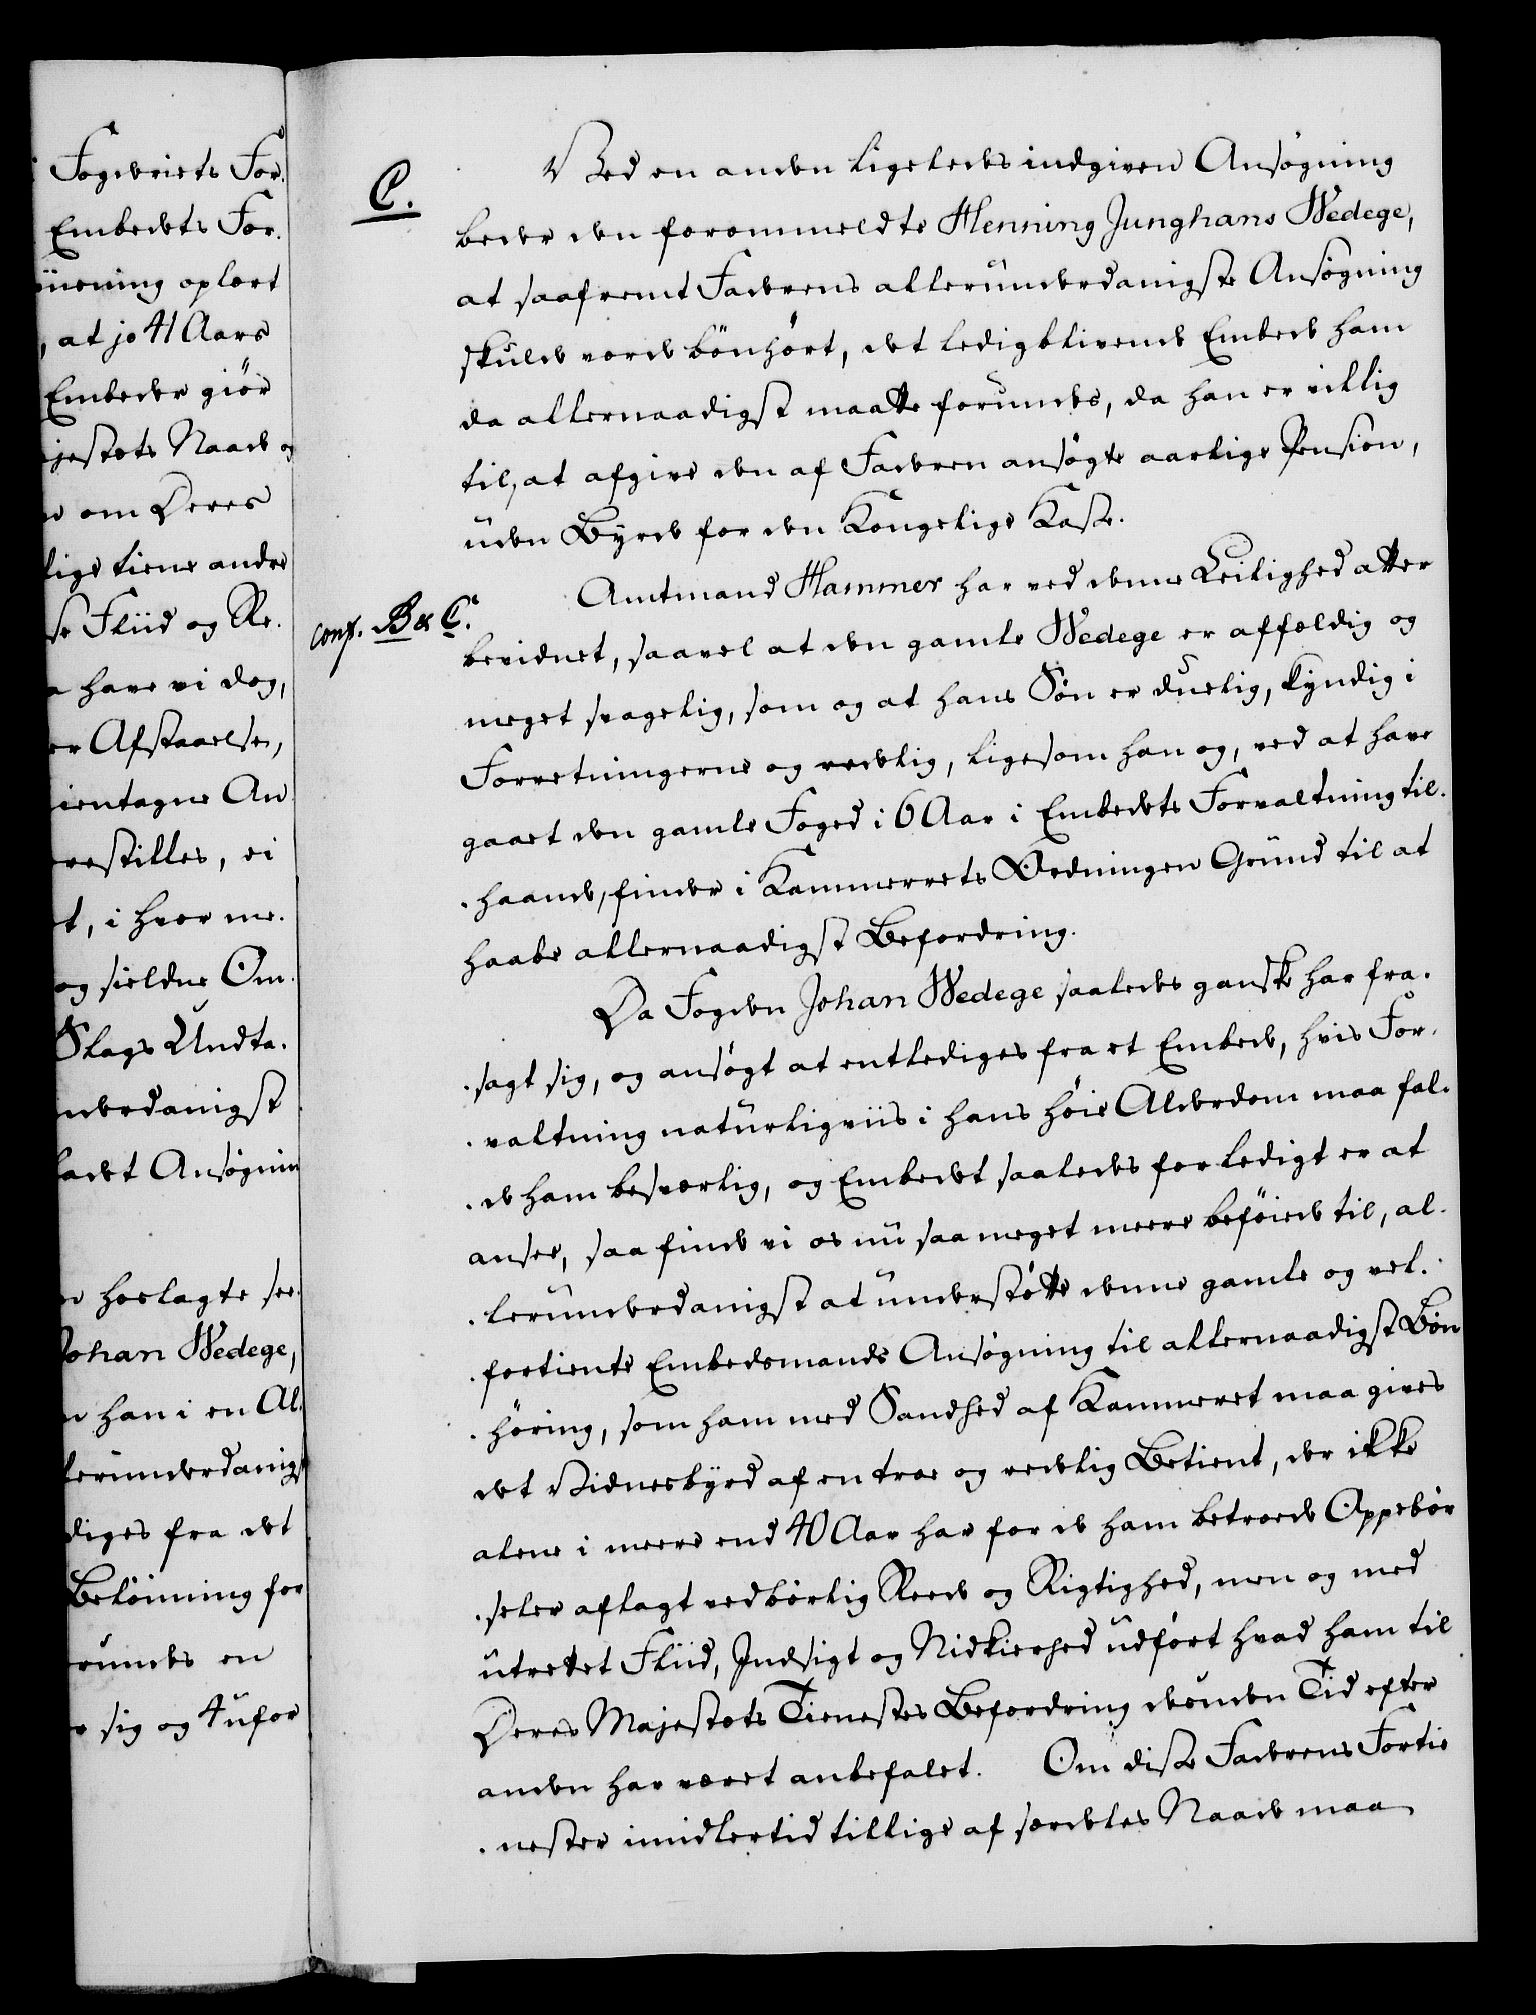 Fogderiets For-
Embedets For-
ening oplært
, at jo 41 Aars
Embeder giør
jestets Naade og
om Deres
lige tiene andre
se Fliid og Re-
have vi dog,
er Afstaaelse,
ientagne An
restilles, ei
t, i hvor me-
og sieldne Om-
Slags Undta-
nderdanigst
ladet Ansøgnin
hoslagte see-
Johan Wedege,
han i en Al-
lerunderdanigst
diges fra det
Belønning for
rundes en
sig og 4 ufor
C.
Ved en anden ligeledes indgiven Ansøgning
beder den forommeldte Henning Junghans Wedege,
at saafremt Faderens allerunderdanigste Ansøgning
skulde vorde bønhørt, det ledigblivende Embede ham
da allernaadigst maatte forundes, da han er villig
til, at afgive den af Faderen ansøgte aarlige Pension,
uden Byrde for den Kongelige Kasse.
conf. B & C.
Amtmand Hammer har ved denne Leilighed atter
bevidnet, saavel at den gamle Wedege er affældig og
meget svagelig, som og at hans Søn er duelig, kyndig i
Forretningerne og redelig, ligesom han og, ved at have
gaaet den gamle Foged i 6 Aar i Embedets Forvaltning til-
-haande, finder i Kammerrets Ordningen Grund til at
haabe allernaadigst Befordring.
Da Fogden Johan Wedege saaledes ganske har fra-
-sagt sig, og ansøgt at entlediges fra et Embede, hvis For-
-valtning naturligviis i hans høie Alderdom maa fal-
-de ham besværlig, og Embedet saaledes for ledigt er at
ansee, saa finde vi os nu saa meget meere beføiede til, al-
-lerunderdanigst at understøtte denne gamle og vel-
-fortiente Embedsmands Ansøgning til allernaadigst Bøn
-høring, som ham med Sandhed af Kammeret maa gives
det Vidnesbyrd af en troe og redelig Betient, der ikke
alene i meere end 40 Aar har for de ham betroede Oppebør
-seler aflagt vedbørlig Reede og Rigtighed, men og med
utrættet Fliid, Indsigt og Nidkierhed udført hvad ham til
Deres Majestæts Tienestes Befordring den een Tid efter
anden har været anbefalet. Om disse Faderens Fortie
-nester imidlertid tillige af særdeles Naade maa